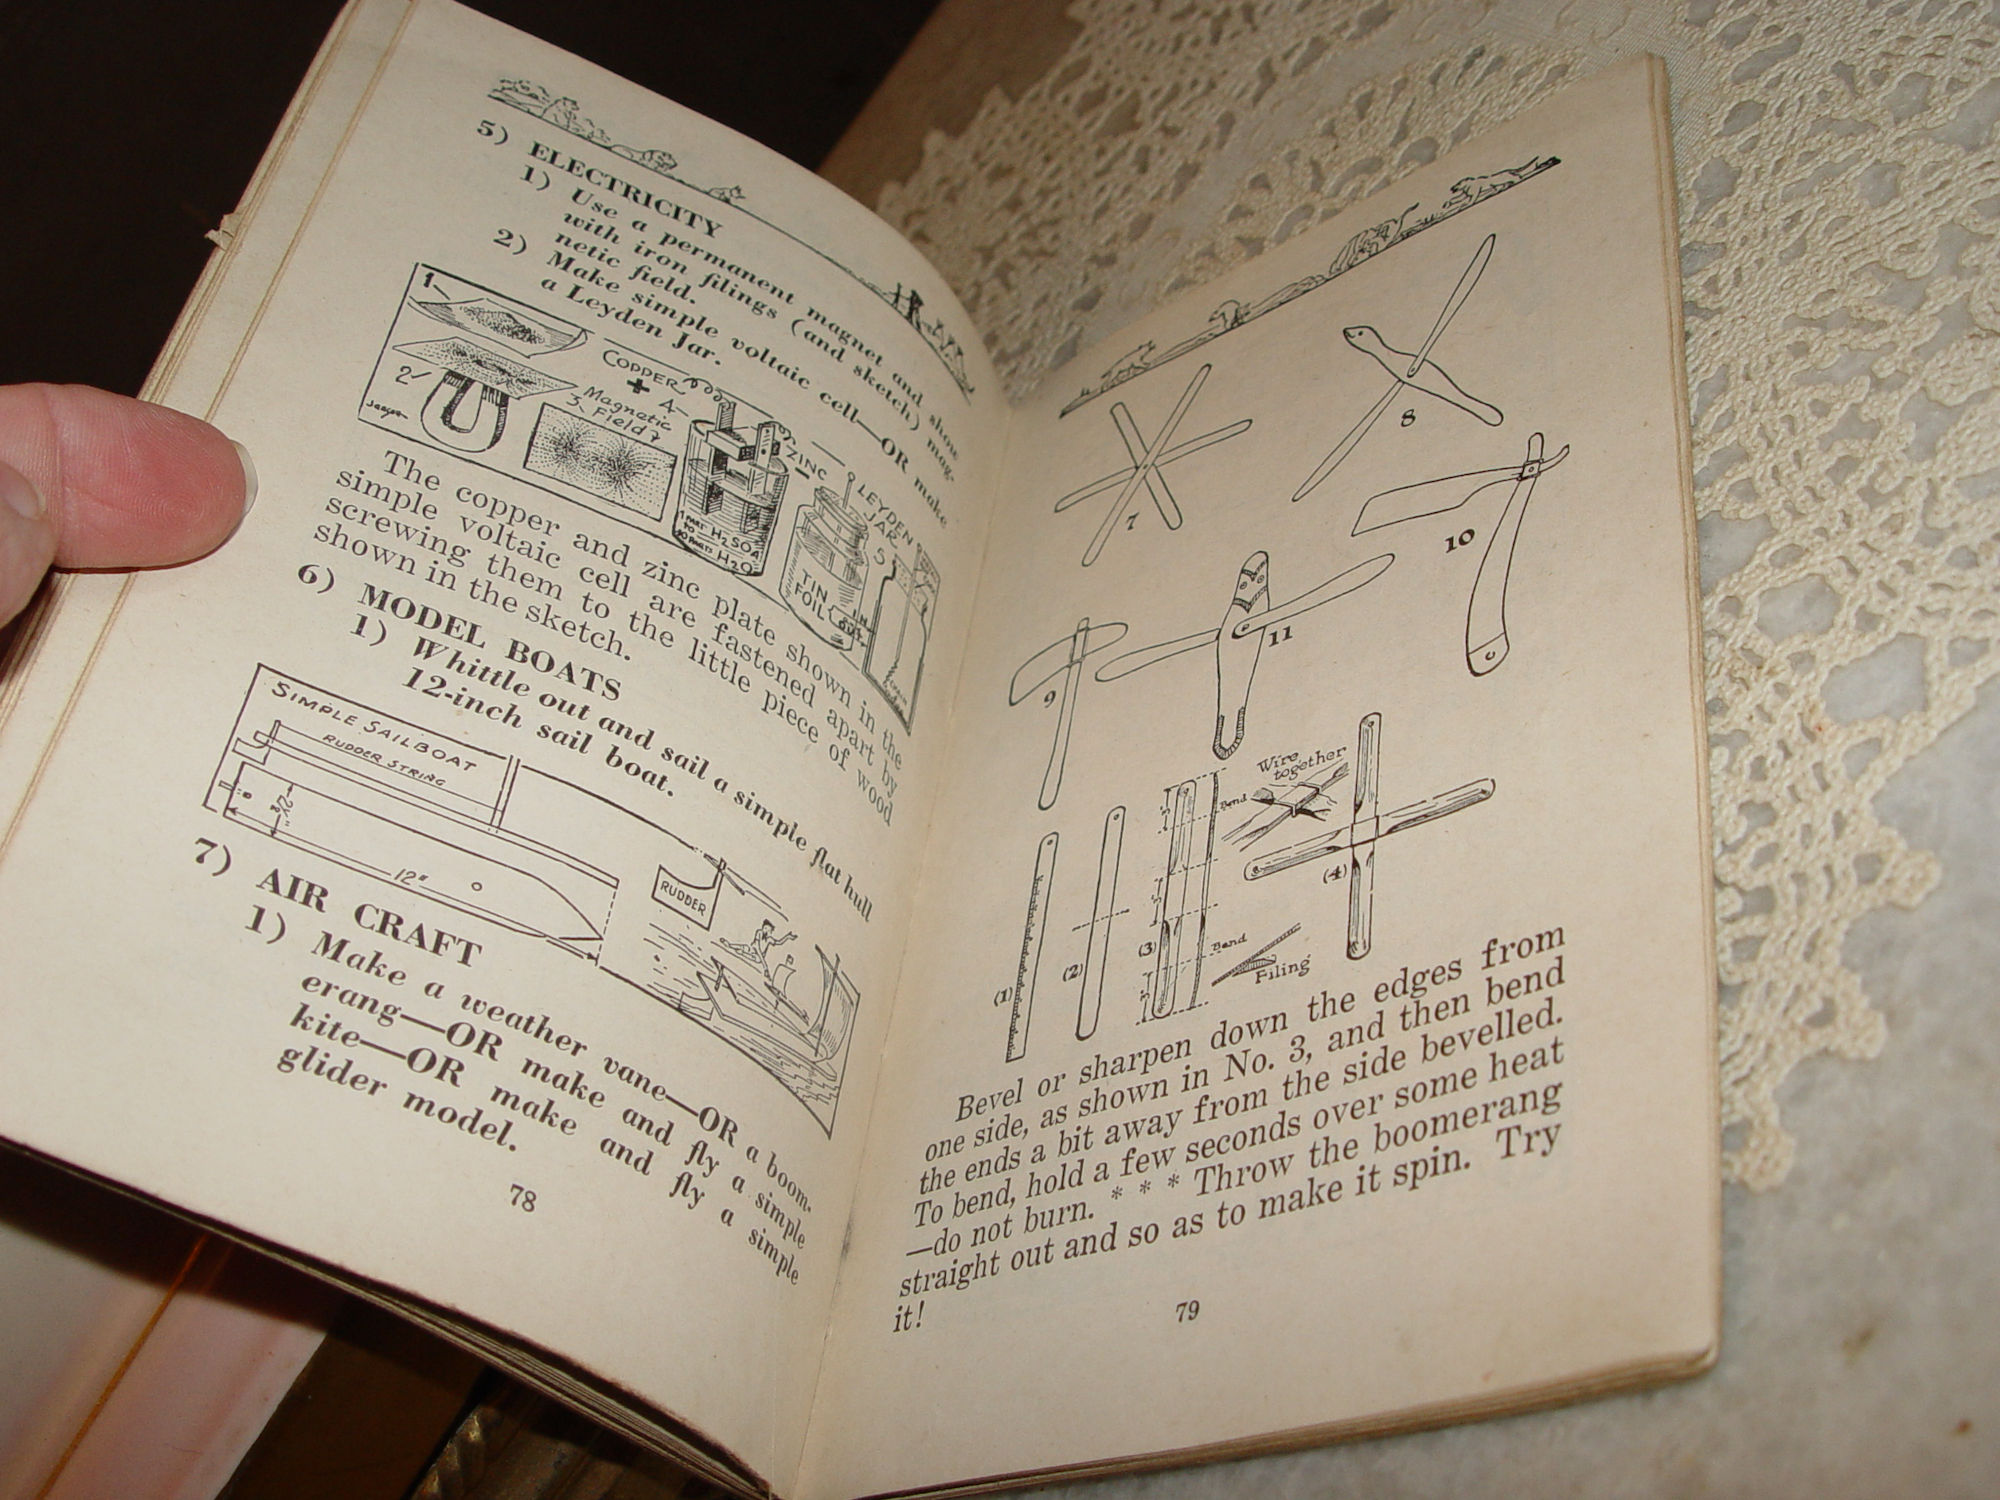 5) ELECTRICITY
1) Use a permanent magnet and show
with iron filings (and sketch) mag-
netic field.
2) Make simple voltaic cell—OR make
a Leyden Jar.
1
2
COPPER
+
A
Magnetic
3. Field
ZINC
LEYDEN
JAR
5
1 PART H2SO4
TO
20 PARTS H2O
TIN
FOIL
IN
OUT
The copper and zinc plate shown in the
simple voltaic cell are fastened apart by
screwing them to the little piece of wood
shown in the sketch.
6) MODEL BOATS
1) Whittle out and sail a simple flat hull
12-inch sail boat.
SIMPLE SAILBOAT
RUDDER STRING
2½"
12"
RUDDER
7) AIR CRAFT
1) Make a weather vane—OR a boom-
erang—OR make and fly a simple
kite—OR make and fly a simple
glider model.
78
7
8
9
10
11
Wire
together
Bend
(1)
(2)
(3)
(4)
Bend
Filing
Bevel or sharpen down the edges from
one side, as shown in No. 3, and then bend
the ends a bit away from the side bevelled.
To bend, hold a few seconds over some heat
—do not burn. * * * Throw the boomerang
straight out and so as to make it spin. Try
it!
79